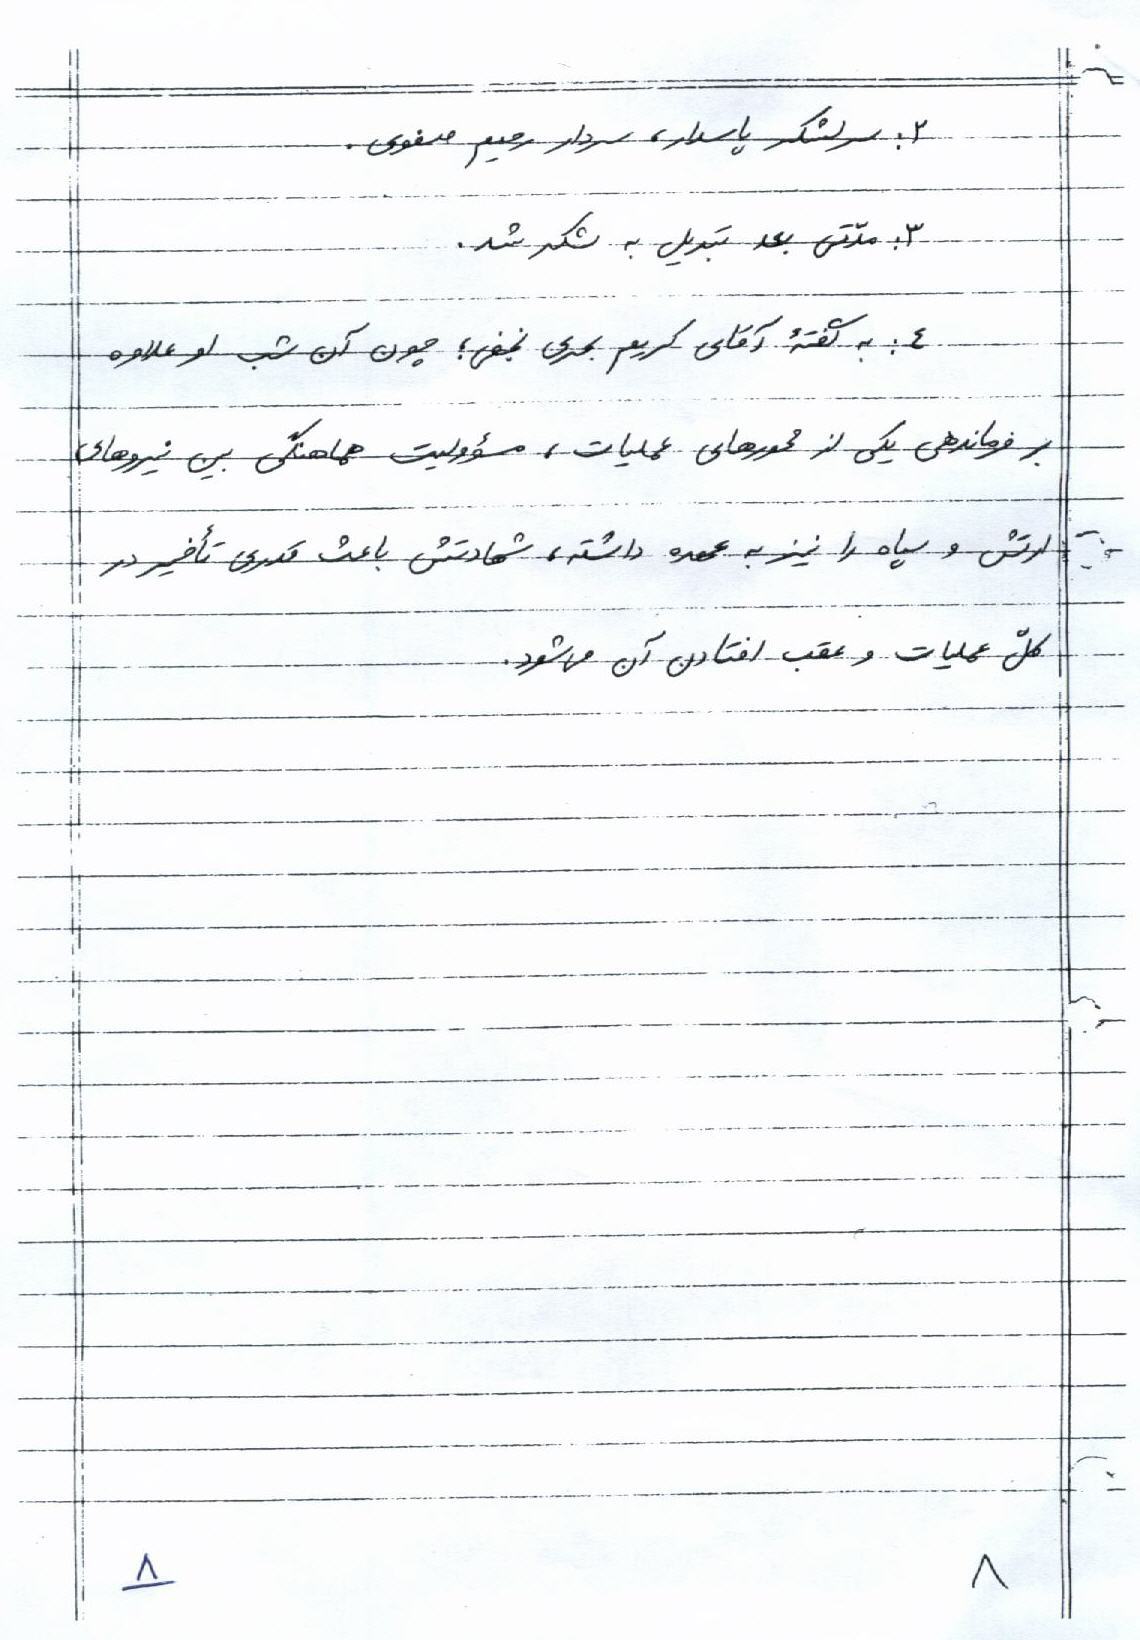 ۲: سرلشکر پاسدار، سردار رحیم صفوی.
۳: مدّتی بعد تبدیل به لشکر شد.
٤: به گفتهٔ آقای کریم بحری نجفی؛ چون آن شب او علاوه
بر فرماندهی یکی از محورهای عملیات، مسؤولیت هماهنگی بین نیروهای
ارتش و سپاه را نیز به عهده داشته، شهادتش باعث قدری تأخیر در
کلّ عملیات و عقب افتادن آن می‌شود.
۸
۸